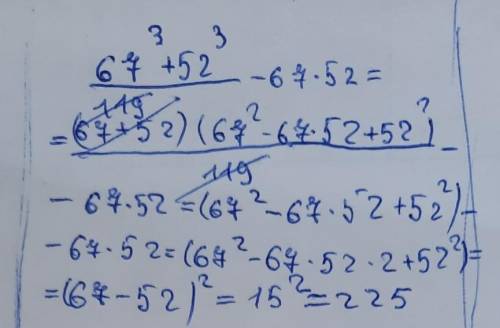 67³+52³
119 - 67·52 =
= (67+52)(67²-67·52+52²) -
119
- 67·52 = (67²-67·52+52²) -
- 67·52 = (67²-67·52·2+52²) =
= (67-52)² = 15² = 225